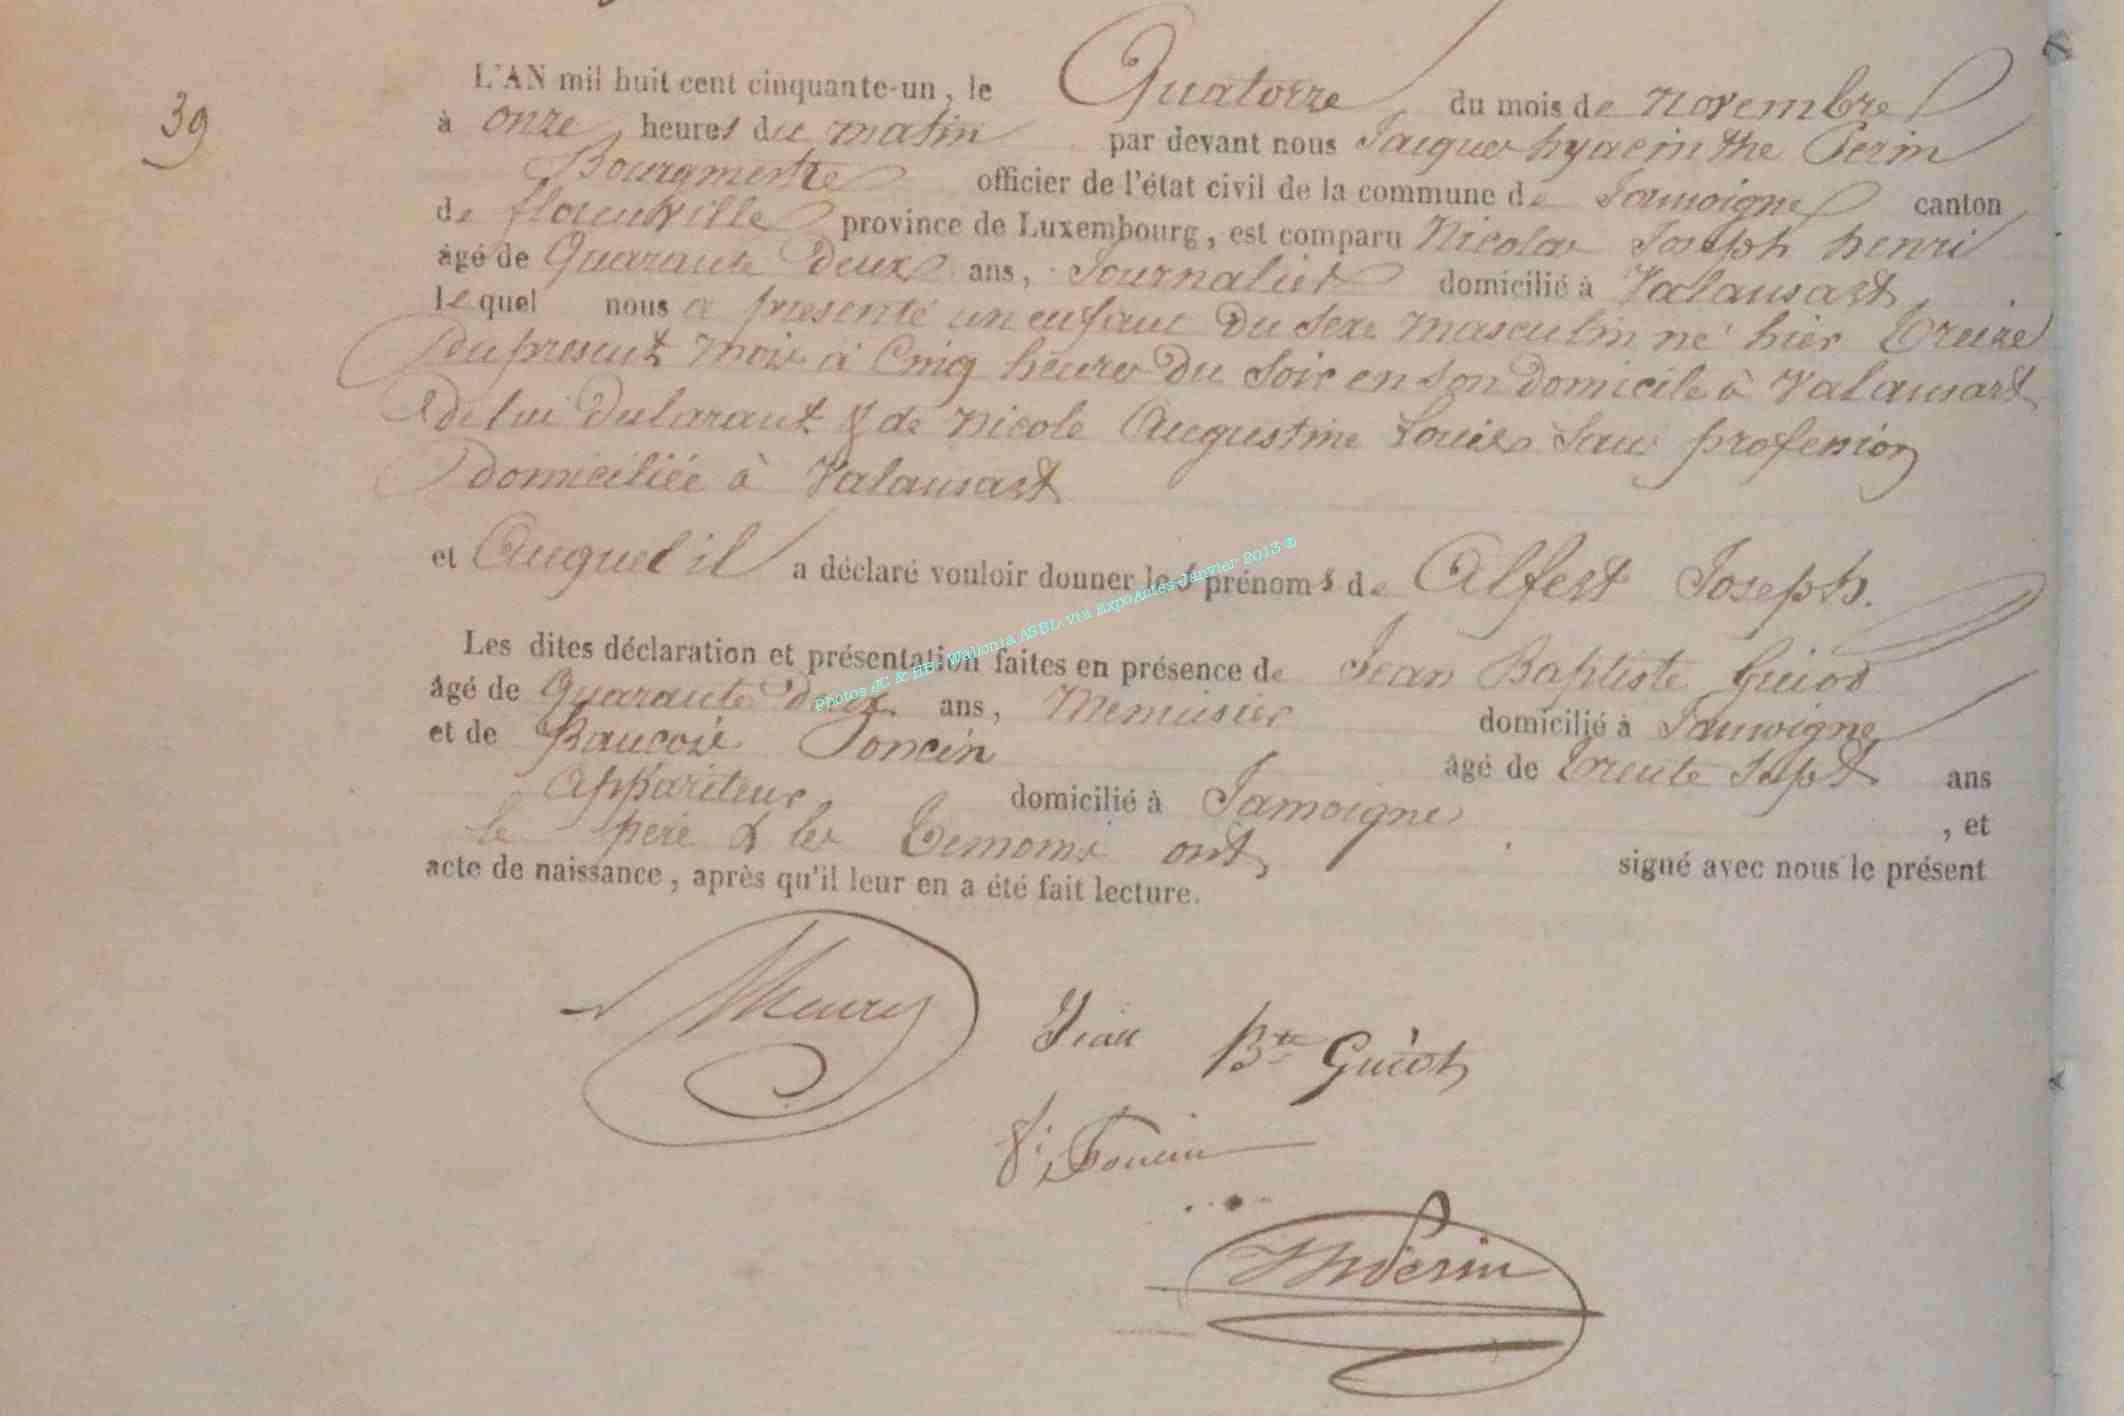 39
L'AN mil huit cent cinquante-un, le Quatorze du mois de novembre
à onze heures du matin par devant nous Jacques hyacinthe Perin
Bourgmestre officier de l'état civil de la commune de Jamoigne canton
de florenville province de Luxembourg, est comparu Nicolas Joseph henri
âgé de Quarante deux ans, Journalier domicilié à Valansart
lequel nous a presenté un enfant du sexe masculin né hier treize
du present mois à Cinq heures du soir en son domicile à Valansart
de lui declarant & de nicole Augustine Louis sans profession
domiciliée à Valansart
et Auquel il a déclaré vouloir donner les prénoms de Alfert Joseph.
Les dites déclaration et présentation faites en présence de Jean Baptiste Guiot
âgé de Quarante deux ans, Menusier domicilié à Jamoigne
et de Poncin âgé de trente sept ans
Appariteur domicilié à Jamoigne , et
le pere & les temoins ont signé avec nous le présent
acte de naissance, après qu'il leur en a été fait lecture.
Photos JC & HE. Wallonia ASBL via ExpoActes-Janvier 2013 ®
Henry
Jean Bte Guiot
Poncin
Perin